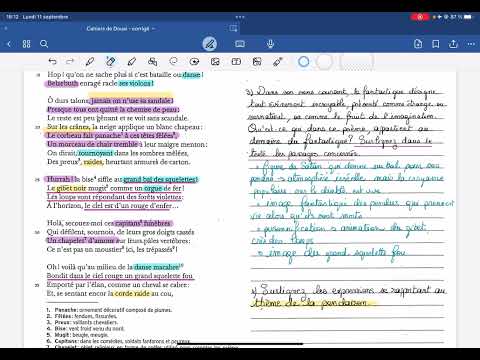 18:12 Lundi 11 septembre
87 %
Cahiers de Douai - corrigé
Hop ! qu'on ne sache plus si c'est bataille ou danse !
Belzébuth enragé racle ses violons !
Ô durs talons, jamais on n'use sa sandale !
Presque tous ont quitté la chemise de peau ;
Le reste est peu gênant et se voit sans scandale.
Sur les crânes, la neige applique un blanc chapeau :
Le corbeau fait panache à ces têtes fêlées,
Un morceau de chair tremble à leur maigre menton :
On dirait, tournoyant dans les sombres mêlées,
Des preux, raides, heurtant armures de carton.
Hurrah ! la bise siffle au grand bal des squelettes !
Le gibet noir mugit comme un orgue de fer !
Les loups vont répondant des forêts violettes :
À l'horizon, le ciel est d'un rouge d'enfer...
Holà, secouez-moi ces capitans funèbres
Qui défilent, sournois, de leurs gros doigts cassés
Un chapelet d'amour sur leurs pâles vertèbres :
Ce n'est pas un moustier ici, les trépassés !
Oh ! voilà qu'au milieu de la danse macabre
Bondit dans le ciel rouge un grand squelette fou
Emporté par l'élan, comme un cheval se cabre :
Et, se sentant encor la corde raide au cou,
1. Panache : ornement décoratif composé de plumes.
2. Fêlées : fendues, fissurées.
3. Preux : vaillants chevaliers.
4. Bise : vent froid venu du nord.
5. Mugit : beugle, meugle.
6. Capitans : dans les comédies, soldats fanfarons et peureux.
3) Dans son sens courant, le fantastique désigne
tout évènement incroyable, présenté comme étrange, sa
narration, ou comme le fruit de l'imagination.
Qu'est-ce qui, dans ce poème, appartient au
domaine du fantastique ? Surlignez dans le
texte les passages concernés.
figure de Satan qui donne au bal
poème : atmosphère irréelle mais la croyance
populaire au diable est
image fantastique des pendus qui prennent
vie alors qu'ils sont morts
personnification : animation du gibet,
cris des loups
image du grand squelette fou
4) Surlignez les expressions se rapportant au
thème de la pendaison.